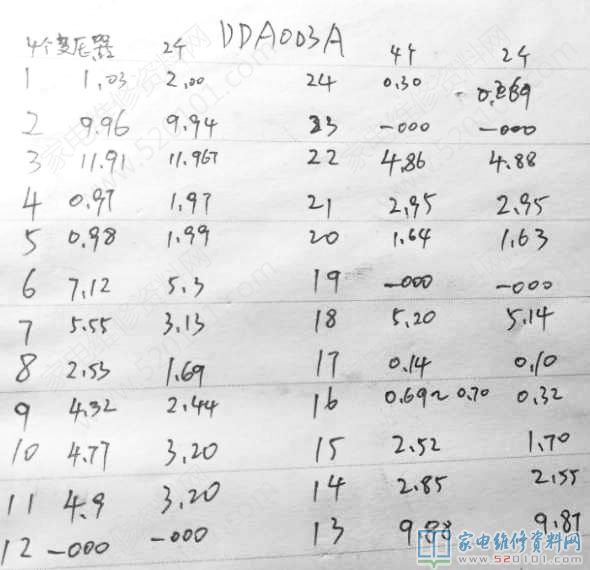 DDA003A
4个变压器 2个 4个 2个
1 1.03 2.00 24 0.30
2 9.96 9.94 23 -000 -000
3 11.91 11.967 22 4.86 4.88
4 0.97 1.97 21 2.95 2.95
5 0.98 1.99 20 1.64 1.63
6 7.12 5.3 19 -000 -000
7 5.55 3.13 18 5.20 5.14
8 2.53 1.69 17 0.14 0.10
9 4.32 2.44 16 0.69~0.70 0.32
10 4.77 3.20 15 2.52 1.70
11 4.9 3.20 14 2.85 2.55
12 -000 -000 13 9.88 9.87
家电维修资料网
www.520101.com